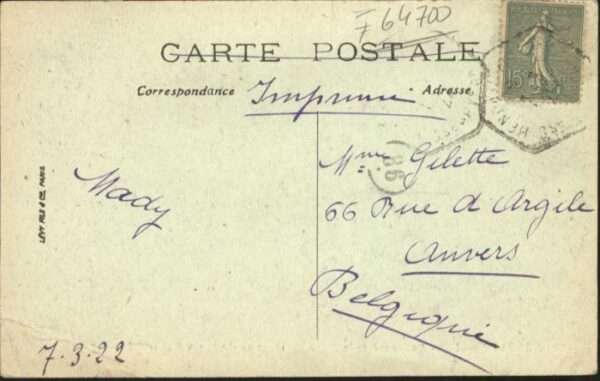 F 64700
CARTE POSTALE
Correspondance
Imprimé
Adresse
15
Mme Gilette
(86)
66 Rue d Argile
Anvers
Belgique
Mady
LÉVY FILS & CIE, PARIS
7.3.22